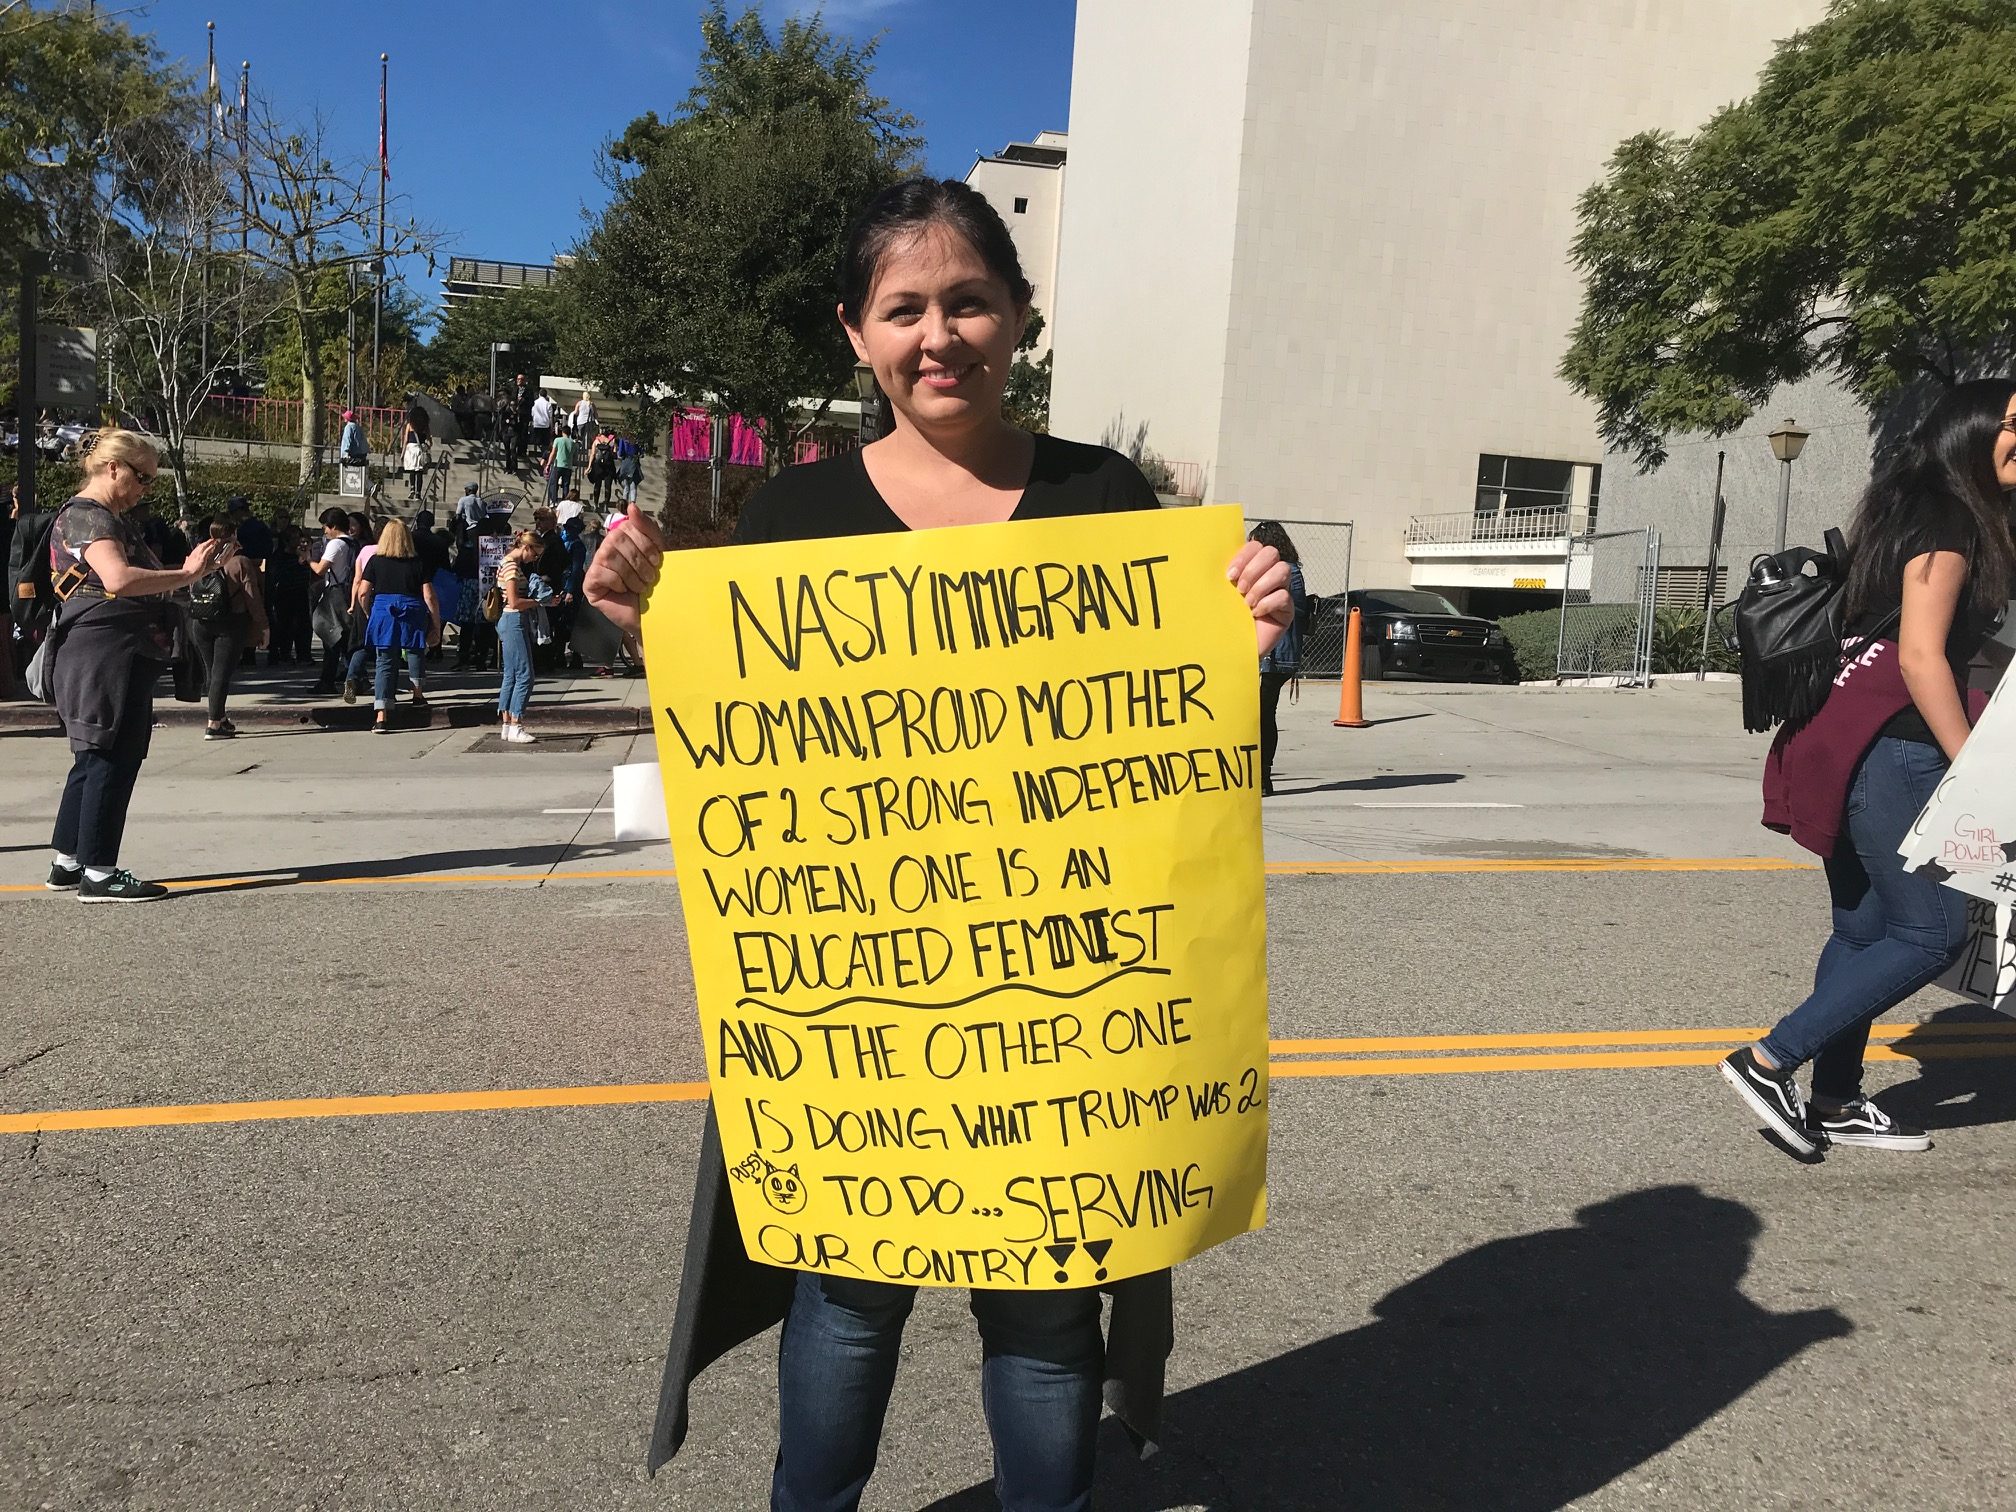 NASTY IMMIGRANT
WOMAN, PROUD MOTHER
OF 2 STRONG INDEPENDENT
WOMEN, ONE IS AN
EDUCATED FEMINIST
AND THE OTHER ONE
IS DOING WHAT TRUMP WAS 2
PUSSY
TO DO... SERVING
OUR CONTRY!!
GIRL
POWER
#
CLEARANCE